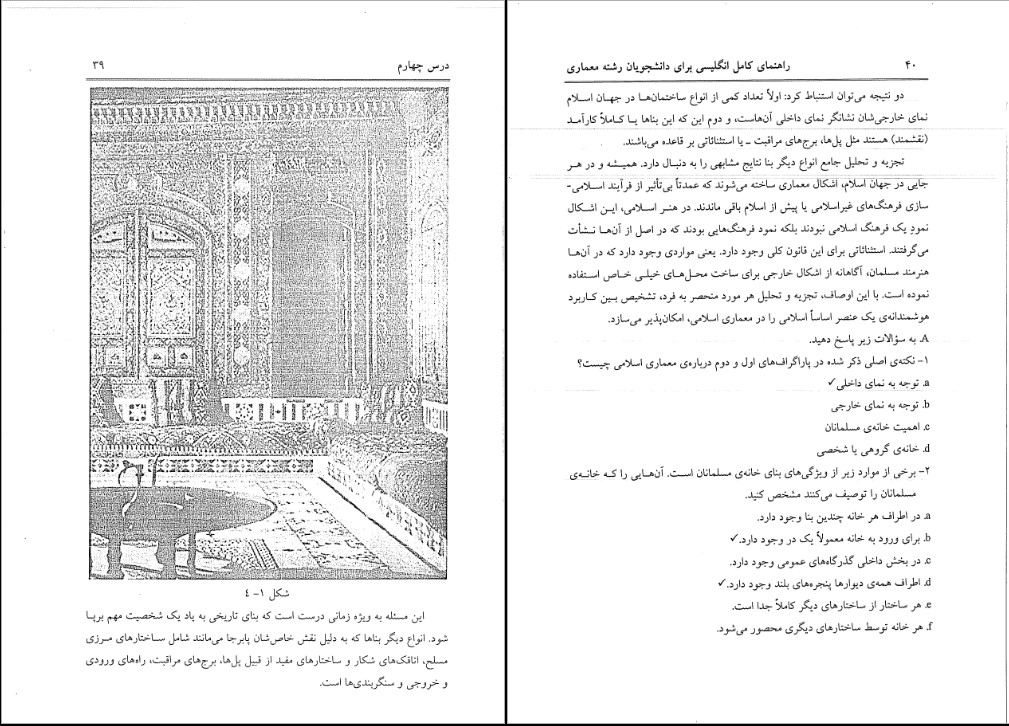 درس چهارم ۳۹
شکل ۱- ٤
این مسئله به ویژه زمانی درست است که بنای تاریخی به یاد یک شخصیت مهم برپا
شود. انواع دیگر بناها که به دلیل نقش خاص‌شان پابرجا می‌مانند شامل ساختارهای مرزی
مسلح، اتاقک‌های شکار و ساختارهای مفید از قبیل پل‌ها، برج‌های مراقبت، راه‌های ورودی
و خروجی و سنگربندی‌ها است.
۴۰ راهنمای کامل انگلیسی برای دانشجویان رشته معماری
دو نتیجه می‌توان استنباط کرد: اولاً تعداد کمی از انواع ساختمان‌ها در جهان اسلام
نمای خارجی‌شان نشانگر نمای داخلی آن‌هاست، و دوم این که این بناها یا کاملاً کارآمد
(نقشمند) هستند مثل پل‌ها، برج‌های مراقبت ـ یا استثنائاتی بر قاعده می‌باشند.
تجزیه و تحلیل جامع انواع دیگر بنا نتایج مشابهی را به دنبال دارد. همیشه و در هر
جایی در جهان اسلام، اشکال معماری ساخته می‌شوند که عمدتاً بی‌تأثیر از فرآیند اسلامی-
سازی فرهنگ‌های غیراسلامی یا پیش از اسلام باقی ماندند. در هنر اسلامی، این اشکال
نمودِ یک فرهنگ اسلامی نبودند بلکه نمود فرهنگ‌هایی بودند که در اصل از آن‌ها نشأت
می‌گرفتند. استثنائاتی برای این قانون کلی وجود دارد. یعنی مواردی وجود دارد که در آن‌ها
هنرمند مسلمان، آگاهانه از اشکال خارجی برای ساخت محل‌های خیلی خاص استفاده
نموده است. با این اوصاف، تجزیه و تحلیل هر مورد منحصر به فرد، تشخیص بین کاربرد
هوشمندانه‌ی یک عنصر اساساً اسلامی را در معماری اسلامی، امکان‌پذیر می‌سازد.
A. به سؤالات زیر پاسخ دهید.
۱- نکته‌ی اصلی ذکر شده در پاراگراف‌های اول و دوم درباره‌ی معماری اسلامی چیست؟
a. توجه به نمای داخلی✓
b. توجه به نمای خارجی
c. اهمیت خانه‌ی مسلمانان
d. خانه‌ی گروهی یا شخصی
۲- برخی از موارد زیر از ویژگی‌های بنای خانه‌ی مسلمانان است. آن‌هایی را که خانه‌ی
مسلمانان را توصیف می‌کنند مشخص کنید.
a. در اطراف هر خانه چندین بنا وجود دارد.
b. برای ورود به خانه معمولاً یک در وجود دارد.✓
c. در بخش داخلی گذرگاه‌های عمومی وجود دارد.
d. اطراف همه‌ی دیوارها پنجره‌های بلند وجود دارد.✓
e. هر ساختار از ساختارهای دیگر کاملاً جدا است.
f. هر خانه توسط ساختارهای دیگری محصور می‌شود.